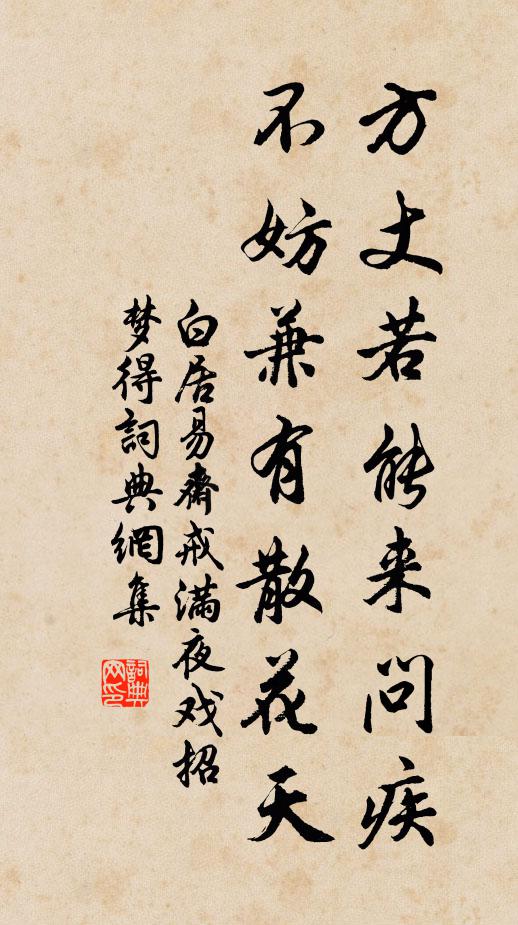 方丈若能来问疾
不妨兼有散花天
白居易斋戒满夜戏招
梦得詞典網集
詞典网印